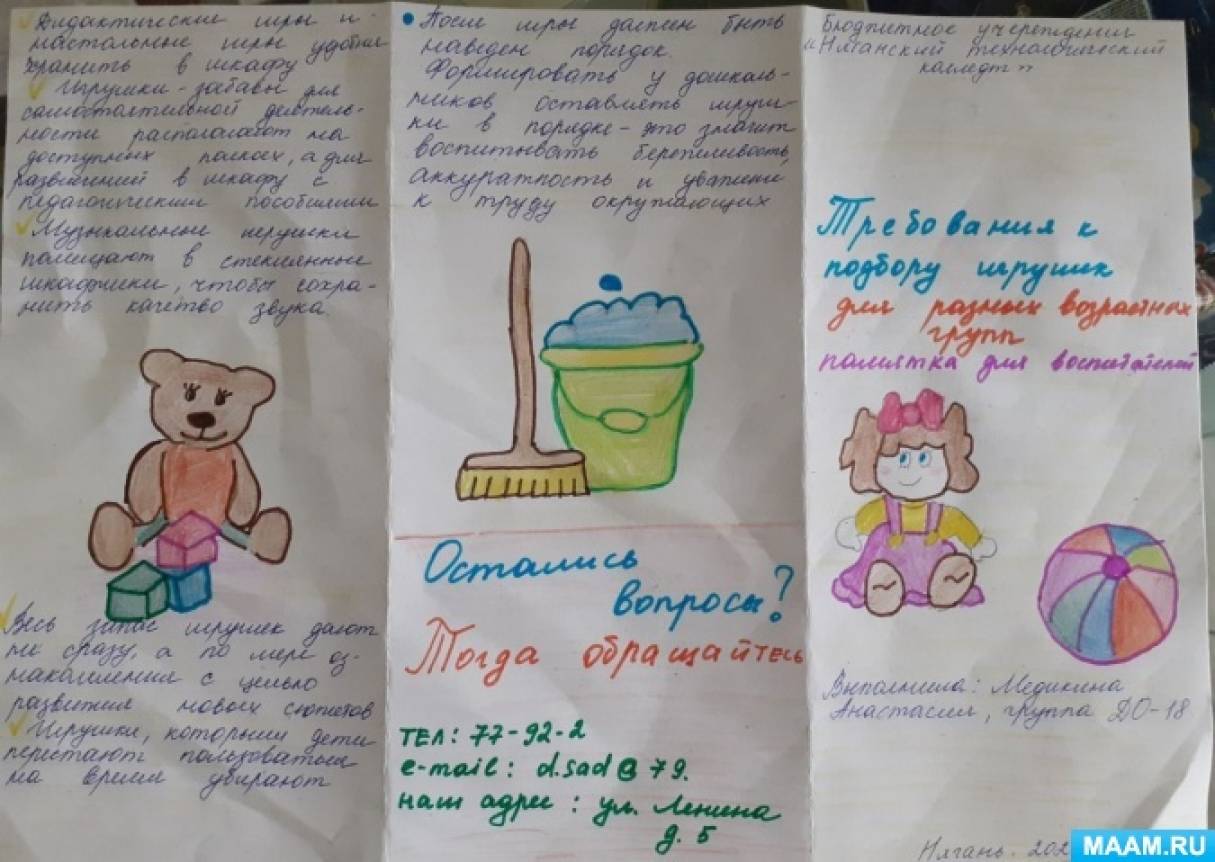 Дидактические игры и
настольные игры удобнее
хранить в шкафу
Игрушки-забавы для
самостоятельной деятель-
ности располагают на
доступных полках, а для
развлечений в шкафу с
педагогическими пособиями
Музыкальные игрушки
помещают в стеклянные
шкафчики, чтобы сохра-
нить качество звука.
Весь запас игрушек дают
не сразу, а по мере оз-
накомления с целью
развития новых сюжетов
Игрушки, которыми дети
перестают пользоваться
на время убирают
После игры должен быть
наведен порядок.
Формировать у дошколь-
ников оставлять игруш-
ки в порядке - это значит
воспитывать бережливость,
аккуратность и уважение
к труду окружающих
Остались
вопросы?
Тогда обращайтесь
тел: 77-92-2
e-mail: d.sad@79.
наш адрес: ул. Ленина
д. 5
Бюджетное учереждения
"Няганский технологический
колледж"
Требования к
подбору игрушек
для разных возрастных
групп
памятка для воспитателей
Выполнила: Медикина
Анастасия, группа ДО-18
Нягань. 202
MAAM.RU